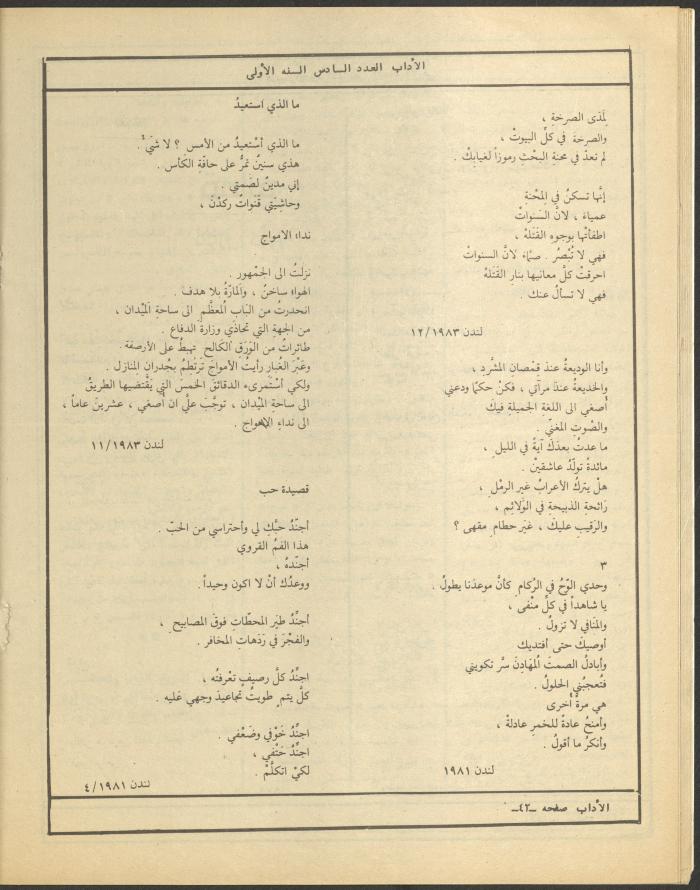 الآداب العدد السادس السنه الأولى
لِمَدى الصرخةِ ،
والصرخةَ في كلِّ البيوتْ ،
لم تعدْ في محنةِ البحْثِ رموزاً لغيابِكْ .
إنَّها تسكنُ في المِحْنةِ
عمياءَ ، لأنَّ السَنواتْ
اطفأتْها بوجوهِ القَتَلهْ ،
فهي لا تُبْصِرُ . صمَّاءَ لأنَّ السنواتْ
احرقتْ كلَّ معانيها بنارِ القَتَلهْ
فهي لا تسألُ عنك .
لندن ١٢/١٩٨٣
وأنا الوديعةُ عندَ قمْصانِ المشَّرد ،
والخديعةُ عندَ مرآتي ، فكنْ حكماً ودعني
أصغي الى اللغةِ الجميلةِ فيكَ
والصْوتِ المغنّي .
ما عدتُ بعدَكَ آيةً في الليل ،
مائدةً تولّدُ عاشقينْ .
هلْ يتركُ الأعرابُ غيرَ الرمْلِ ،
رَائحةِ الذبيحةِ في الوَلائِم ،
والرَقيبِ عليكَ ، غيْرَ حطامِ مقهى ؟
٣
وحدي الوّحُ في الرُكام كأنَّ موعدَنا يطولُ .
يا شاهداً في كلِّ منْفى ،
والمَنافي لا تزولُ .
أوصيكَ حتى أفتديك
وأبادلُ الصمتَ المُهَادِنَ سَّر تكويني
فتُعجبُني الحلولُ .
هي مرةً أُخرى
وأمنحُ عادةً للخمرِ عادلةً ،
وأنكرُ ما أقولُ .
لندن ١٩٨١
ما الذي استعيدُ
ما الذي أسْتعيدُ من الأمسِ ؟ لا شَيْءَ .
هذي سنينٌ تمرُّ على حافّةِ الكَأس .
إني مدينٌ لصَمتي .
وحاشِيَتي قَنَواتٌ ركدْنَ ،
نداء الامواج
نزلتُ الى الجمْهور .
الهواء ساخنٌ ، والمارّةُ بلا هدف .
انحدرتُ من البَاب المُعظَّم الى ساحةِ المَيْدان ،
من الجهةِ التي تحاذي وزارةَ الدفاع .
طائراتٌ من الوَرَقِ الكالحِ تهبطُ على الأرصفة .
وعَبْرَ الغُبارِ رأيتُ الأمواجَ تَرتَطِمُ بجُدرانِ المنازل .
ولكي أسْتَمرىءَ الدقائقَ الخمسَ التي يَقْتضيها الطريقُ
الى ساحةِ المَيْدان ، توجَّبَ عليَّ ان أُصغي ، عشرينَ عاماً ،
الى نداءِ الامواج .
لندن ١١/١٩٨٣
قصيدة حب
أجنّدُ حبَّكِ لي وأحتراسي من الحبّ .
هذا الفمُ القروي
أجنّدهُ ،
ووعدُك أنْ لا اكون وحيداً .
أجنِّدُ طيْرَ المحطّاتِ فوقَ المصابيحِ ،
والفجْرَ في رَدَهاتِ المخافر .
اجنِّدُ كلَّ رصيفٍ تعْرفتُه ،
كلَّ يتم طويتُ تجاعيدَ وجهي عَليه .
اجنِّدُ خَوْفي وضَعْفي .
اجنِّدُ حَتْفي ،
لكيْ اتكلَّمْ .
لندن ٤/١٩٨١
الآداب صفحه -٤٢-